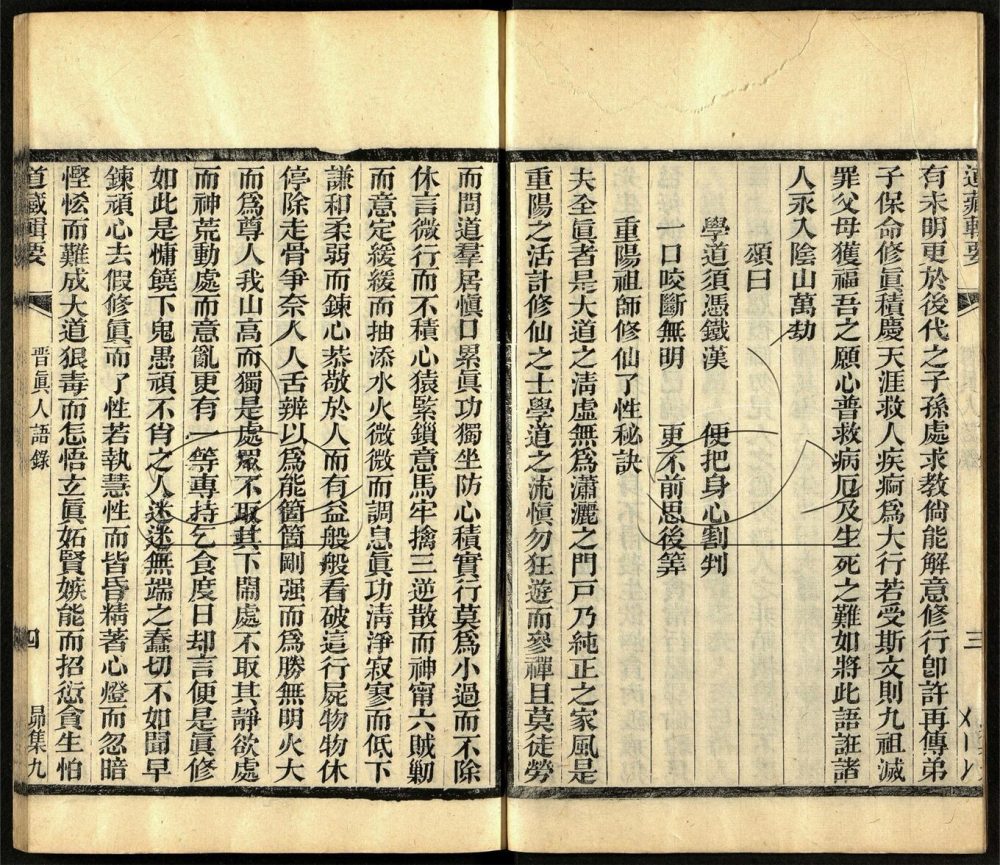 道藏輯要
三
有未明更於後代之子孫處求教倘能解意修行卽許再傳弟
子保命修眞積慶天涯救人疾痾爲大行若受斯文則九祖滅
罪父母獲福吾之願心普救病厄及生死之難如將此語誑諸
人永入陰山萬劫
頌曰
學道須憑鐵漢 便把身心割判
一口咬斷無明 更不前思後筭
重陽祖師修仙了性秘訣
夫全眞者是大道之淸虛無爲瀟灑之門戸乃純正之家風是
重陽之活計修仙之士學道之流愼勿狂遊而參禪且莫徒勞
而問道羣居愼口累眞功獨坐防心積實行莫爲小過而不除
休言微行而不積心猿緊鎖意馬牢擒三逆散而神甯六賊勦
而意定緩緩而抽添水火微微而調息眞功淸淨寂寥而低下
謙和柔弱而鍊心恭敬於人而有益般般看破這行屍物物休
停除走骨爭奈人人舌辨以爲能箇箇剛强而爲勝無明火大
而爲尊人我山高而獨是處眾不取其下鬧處不取其靜欲處
而神荒動處而意亂更有一等專持乞食度日却言便是眞修
如此是慵饒下鬼愚頑不肖之人迷迷無端之蠢切不如聞早
鍊頑心去假修眞而了性若執慧性而皆昏精著心燈而忽暗
慳悋而難成大道狠毒而怎悟玄眞妬賢嫉能而招愆貪生怕
道藏輯要 晋眞人語錄 四 昴集九